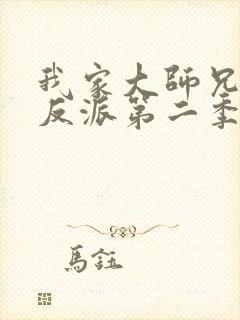 我家大師兄
反派第二季
馬鈺